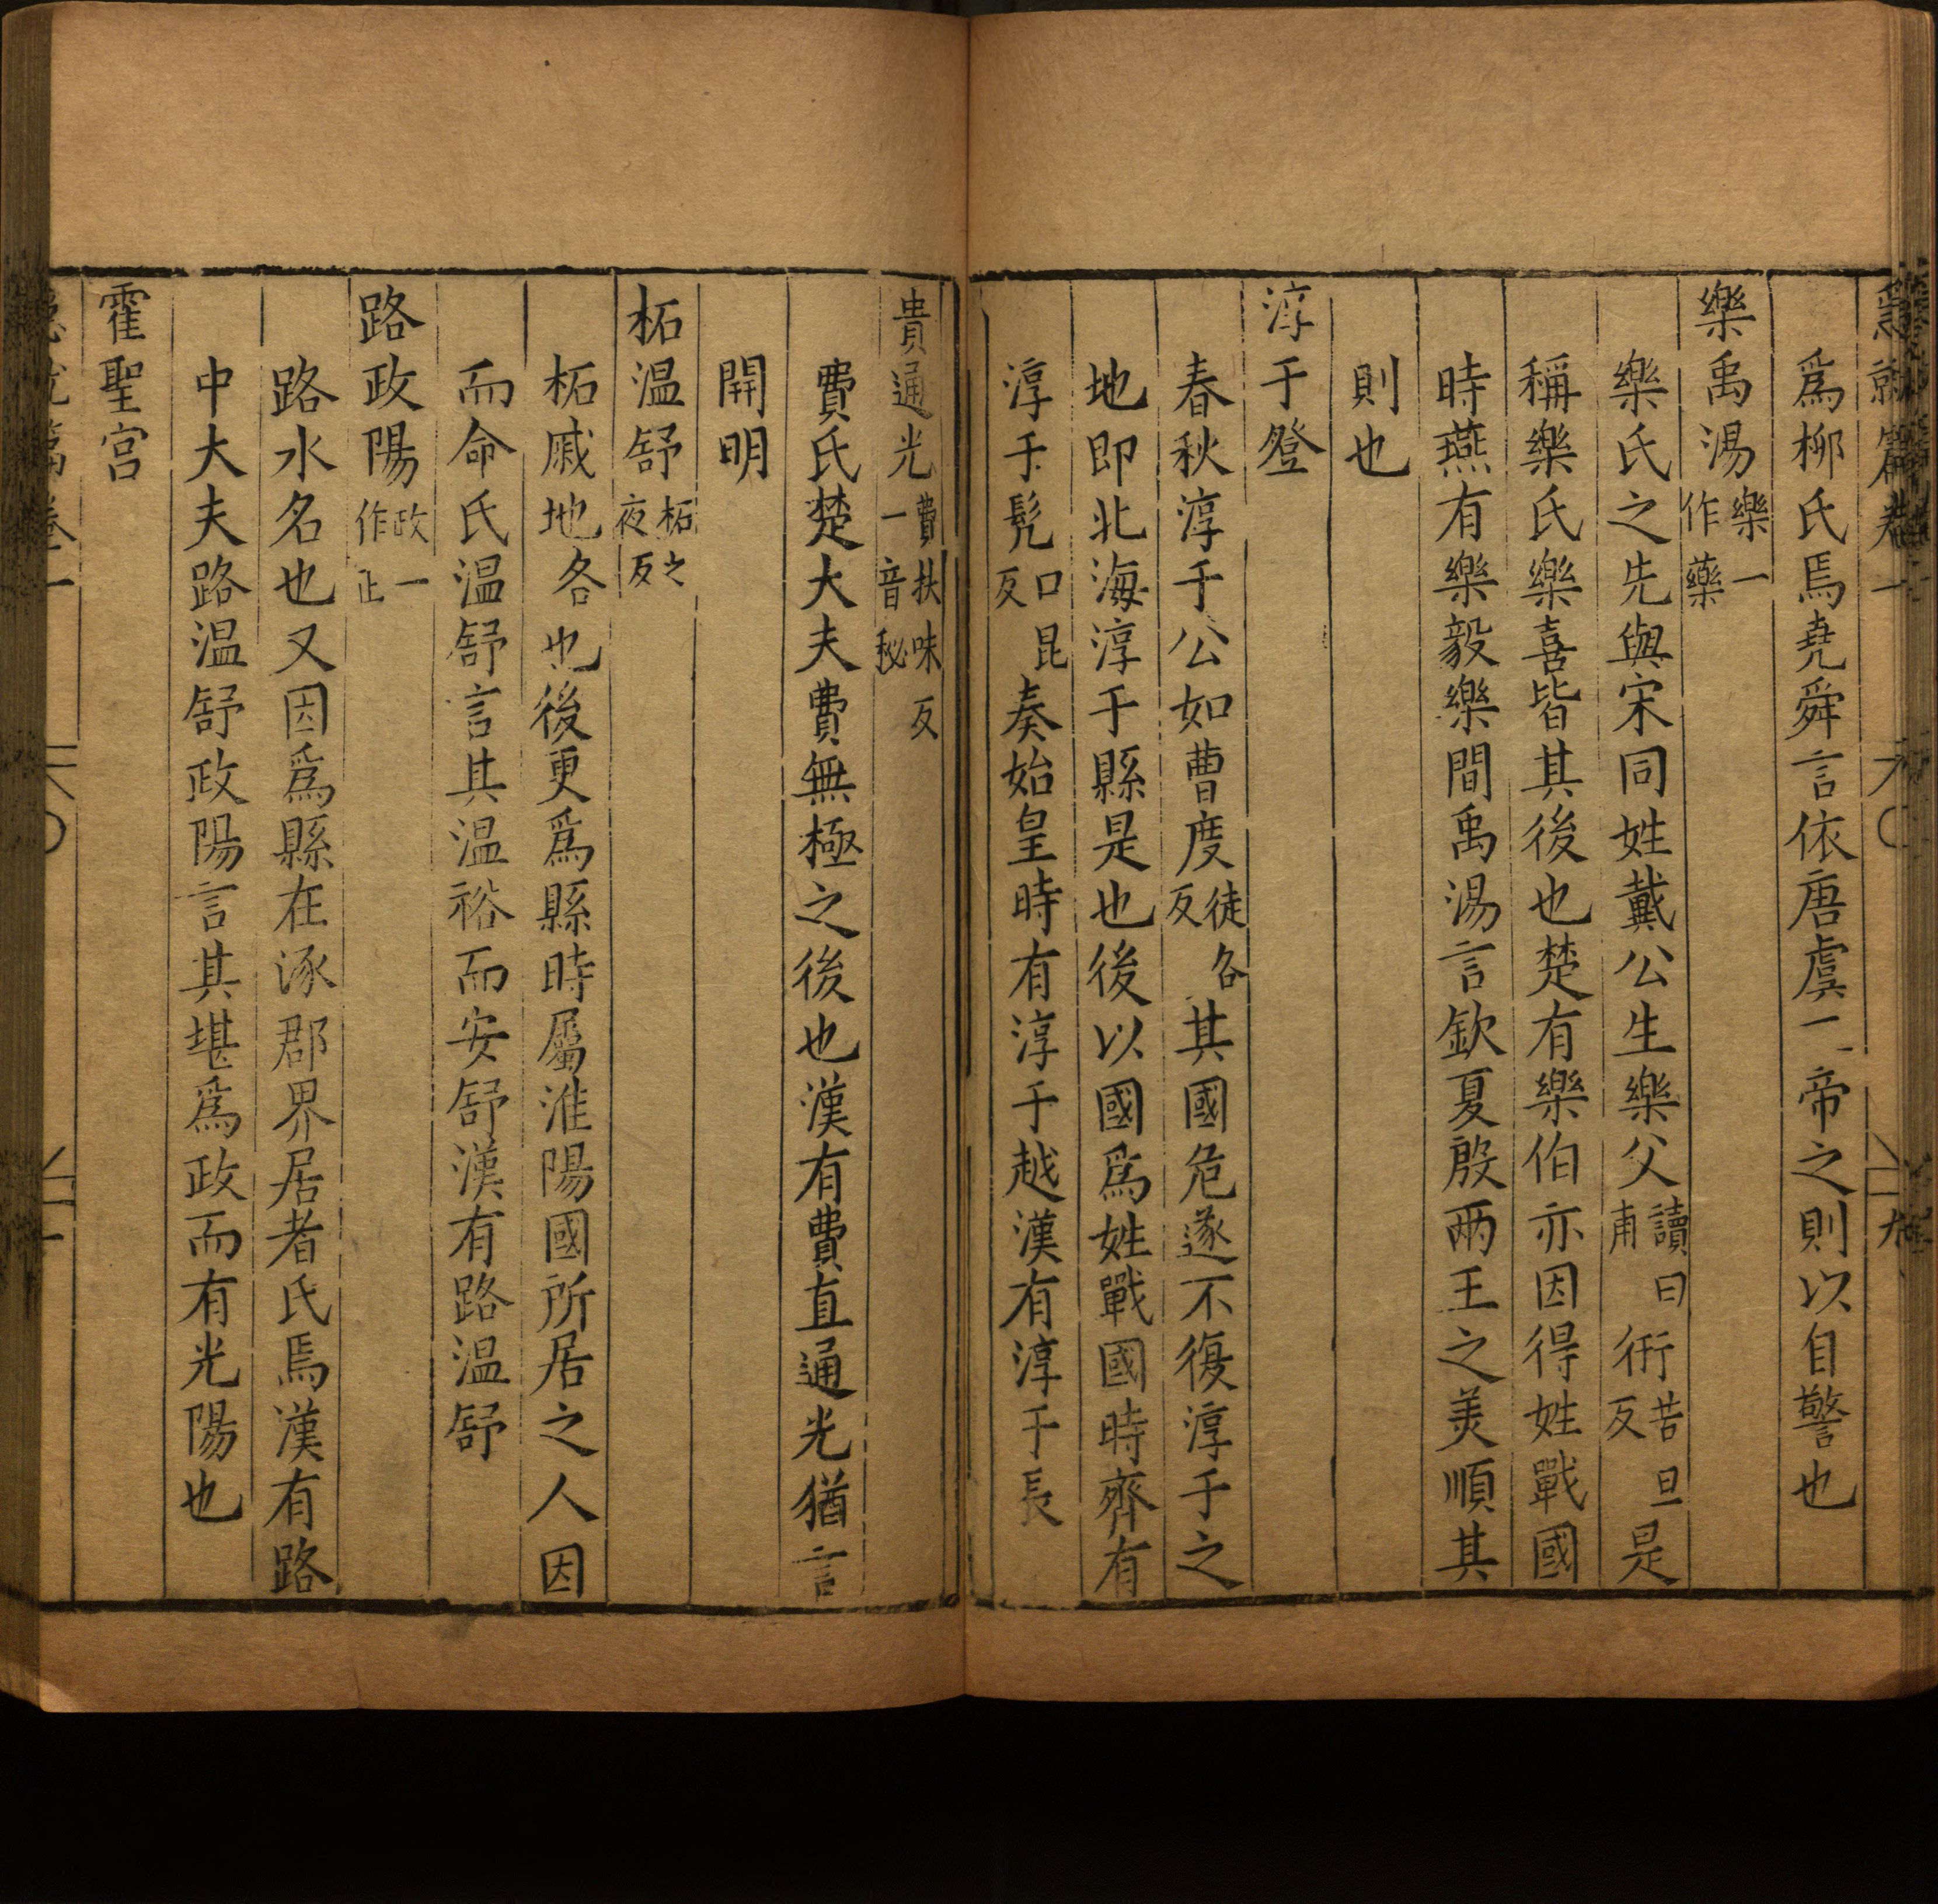 急就篇卷一
九
爲柳氏焉堯舜言依唐虞二帝之則以自警也
樂禹湯樂一作藥
樂氏之先與宋同姓戴公生樂父讀曰甫衎苦旦反是
稱樂氏樂喜皆其後也楚有樂伯亦因得姓戰國
時燕有樂毅樂間禹湯言欽夏殷兩王之美順其
則也
淳于登
春秋淳于公如曹度徒各反其國危遂不復淳于之
地即北海淳于縣是也後以國爲姓戰國時齊有
淳于髡口昆反秦始皇時有淳于越漢有淳于長
費通光費扶味反一音秘
費氏楚大夫費無極之後也漢有費直通光猶言
開明
柘温舒柘之夜反
柘戚地名也後更爲縣時屬淮陽國所居之人因
而命氏温舒言其温裕而安舒漢有路温舒
路政陽政一作正
路水名也又因爲縣在涿郡界居者氏焉漢有路
中大夫路温舒政陽言其堪爲政而有光陽也
霍聖宫